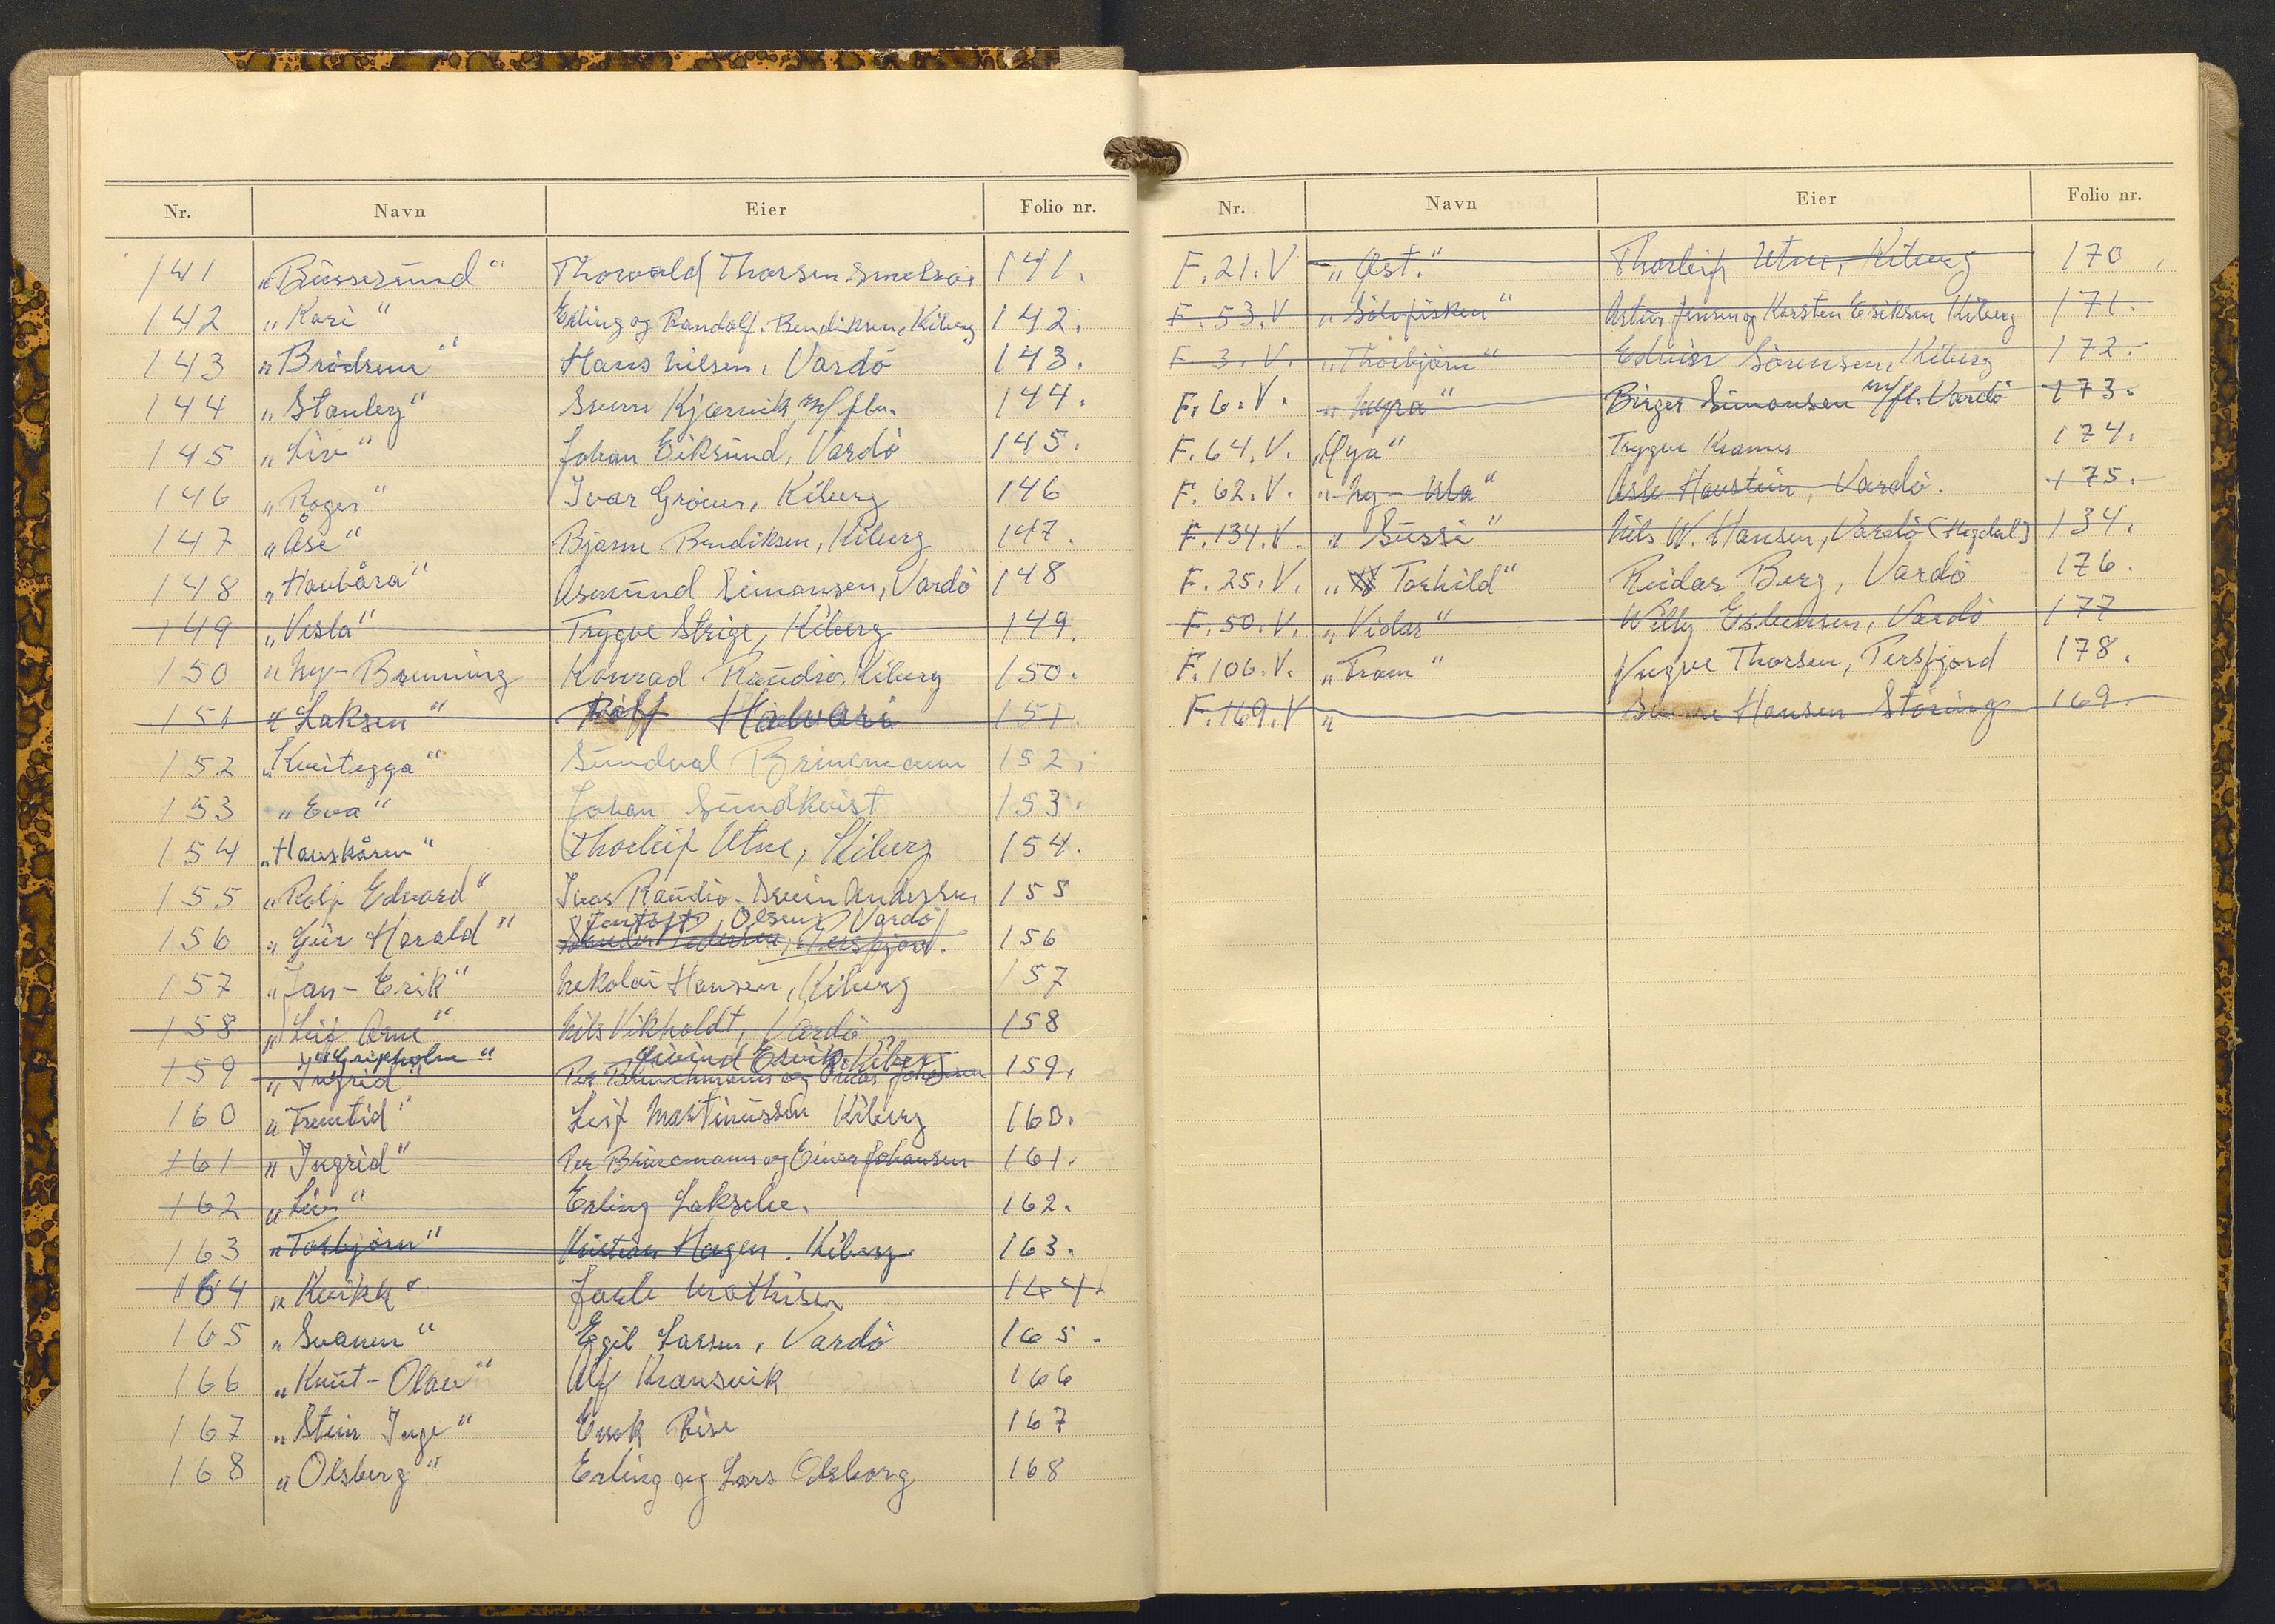 Nr. Navn Eier Folio nr.
141 „Bussesund" Thorvald Thorsen 141.
142 „Kari" Erling og Randolf. Bendiksen, Kiberg 142.
143 „Brödrene" Hans Nilsen, Vardö 143.
144 „Stanley" Sverre Kjærvik m/fl. 144.
145 „Liv" Johan Eiksund, Vardö 145.
146 „Roger" Ivar Gröner, Kiberg 146
147 „Åse" Bjarne Bendiksen, Kiberg 147.
148 „Havbåra" Asmund Simonsen, Vardö 148
149 „Vesla" Trygve Strige, Kiberg 149.
150 „Ny-Brenning Konrad Raudio, Kiberg 150.
151 „Laksen" Rolf Halvari 151.
152 „Kvitegga" Sundval Brinemann 152.
153 „Eva" Johan Sundkvist 153.
154 „Havskåren" Thorleif Utne, Kiberg 154.
155 „Rolf Edvard" Ivar Raudio. Svein Andersen 155
Olsen, Vardö
156 „Geir Harald" Persfjord. 156
157 „Jan-Erik" Nekolai Hansen, Kiberg 157
158 „Leif Arne" Nils Vikholdt, Vardö 158
„Gripholm" Eivind Ervik, Kiberg
159 „Ingrid" Per Brinchmann og Einar Johansen 159.
160 „Fremtid" Leif Martinussen Kiberg 160.
161 „Ingrid" Per Brinemann og Einar Johansen 161.
162 „Liv" Erling Laksele. 162.
163 „Torbjörn" Kristian Hagen. Kiberg 163.
164 „Kvikk" Jarle Mathisen 164.
165 „Svanen" Egil Larsen, Vardö 165.
166 „Knut-Olav" Alf Kransvik 166
167 „Stein Inge" Enok Rise 167
168 „Olsberg" Erling og Lars Olsborg 168
Nr. Navn Eier Folio nr.
F.21.V „Øst." Thorleif Utne, Kiberg 170
F.53.V „Sölvfisken" Astur Jensen og Karsten Eriksen Kiberg 171.
F.3.V. „Thorbjörn" Edvisr Sörensen, Kiberg 172.
F.6.V. „Nyra" Birger Simonsen m/fl. Vardö 173.
F.64.V. „Øya" Trygve Kramer 174.
F.62.V. „Ny-Ula" Asle Haustein, Vardö. 175.
F.134.V. „Sussi" Nils W. Hansen, Vardö (Hegdal) 134.
F.25.V. „Torhild" Reidar Berg, Vardö 176.
F.50.V. „Vidar" Willy Esbensen, Vardö 177
F.106.V. „Fram" Yngve Thorsen, Persfjord 178.
F.169.V „ Hansen Störing 169